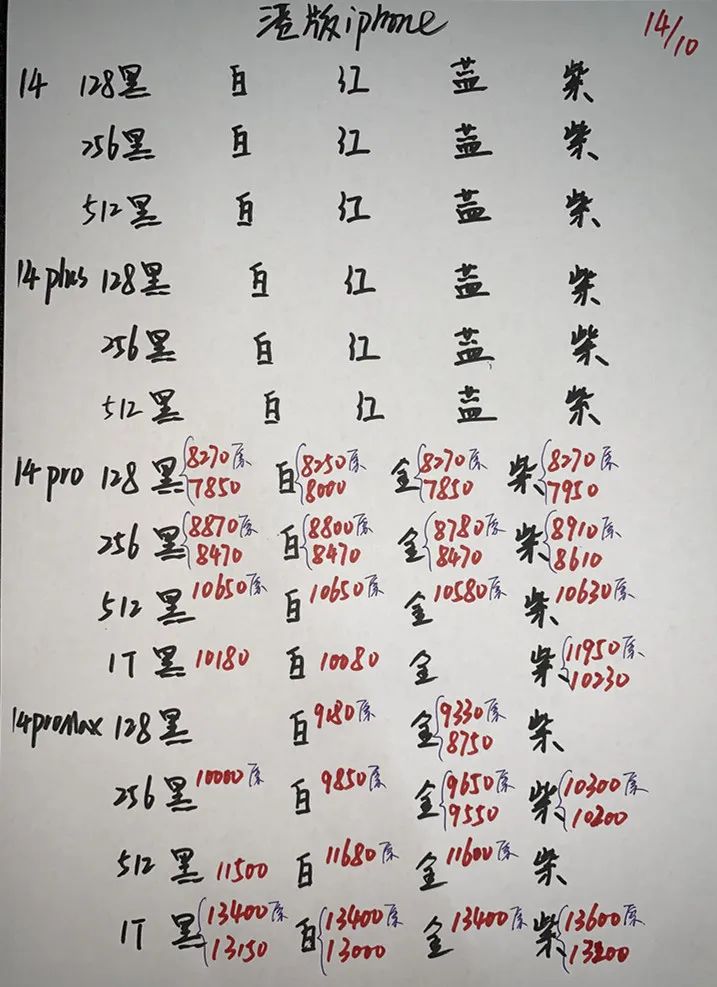 港版iphone 14/10
14 128黑 白 红 蓝 紫
256黑 白 红 蓝 紫
512黑 白 红 蓝 紫
14plus 128黑 白 红 蓝 紫
256黑 白 红 蓝 紫
512黑 白 红 蓝 紫
14pro 128黑{8270原 白{8250原 金{8270原 紫{8270原
7850 8000 7850 7950
256黑{8870原 白{8800原 金{8780原 紫{8910原
8470 8470 8470 8610
512黑10650原 白10650原 金10580原 紫10630原
1T黑10180 白10080 金 紫{11950原
10230
14proMax 128黑 白9180原 金{9330原 紫
8750
256黑10000原 白9850原 金{9650原 紫{10300原
9550 10200
512黑11500 白11680原 金11600原 紫
1T黑{13400原 白{13400原 金13400原 紫{13600原
13150 13000 13200